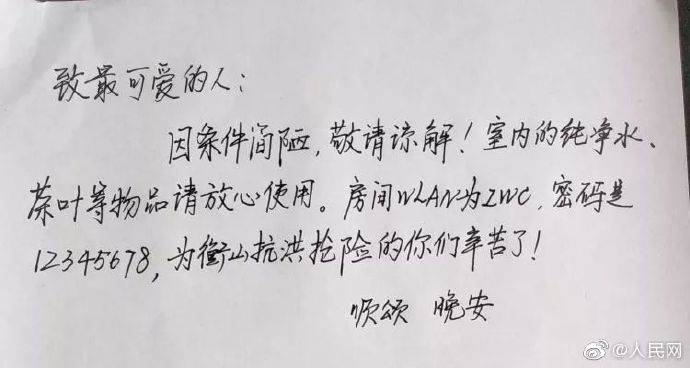 致最可爱的人：
因条件简陋，敬请谅解！室内的纯净水、
茶叶等物品请放心使用。房间WLAN为ZWC，密码是
12345678，为衡山抗洪抢险的你们辛苦了！
顺颂 晚安
@人民网